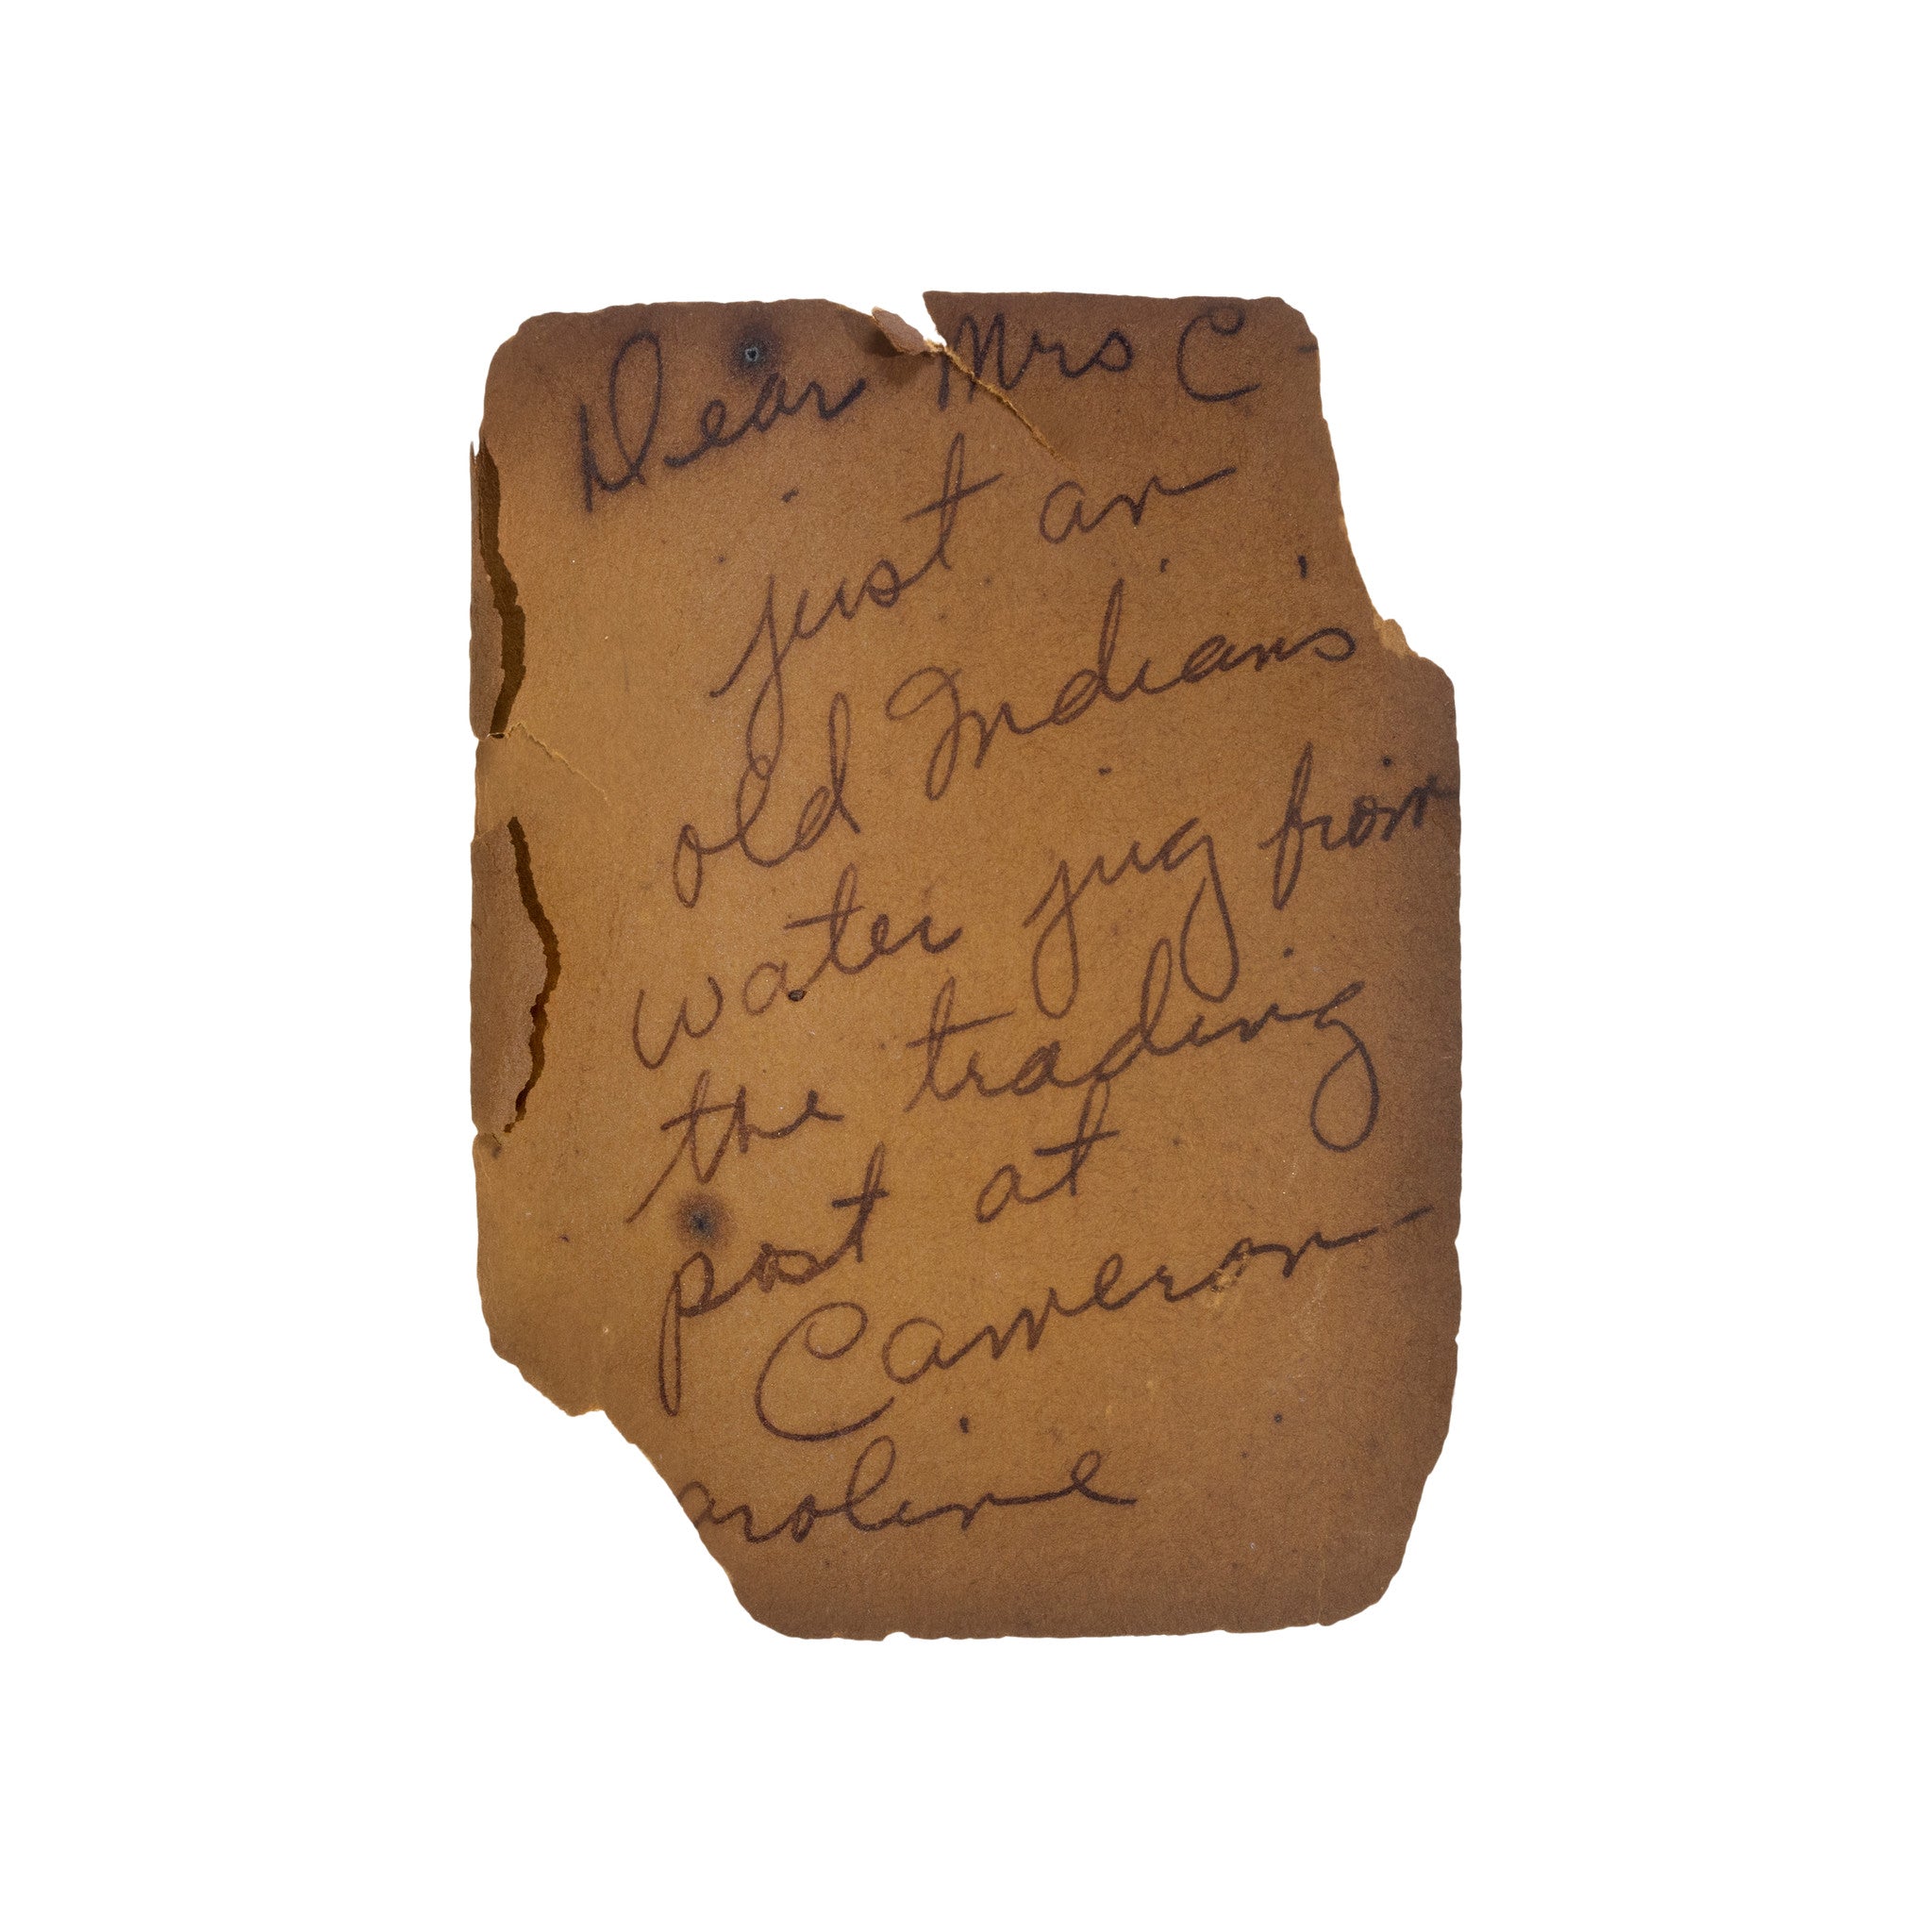 Dear Mrs C-
just an
old Indian's
water jug from
the trading
post at
Cameron-
aroline